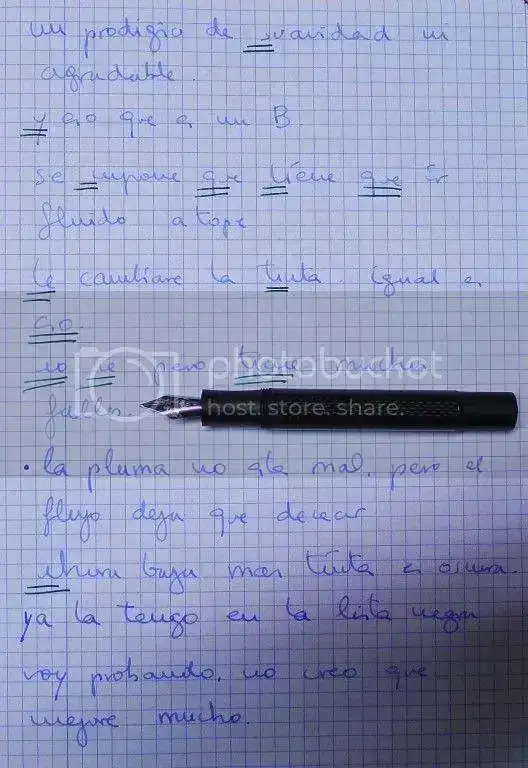 un prodigio de suavidad ni
agradable.
y eso que es un B
se supone que tiene que ir
fluido a tope
le cambiare la tinta. igual es
eso.
no se pero tiene muchos
fallos.
photobucket
host. store. share.
• la pluma no esta mal, pero el
flujo deja que desear
ahora baja mas tinta es oscura.
ya la tengo en la lista negra
voy probando, no creo que
mejore mucho.